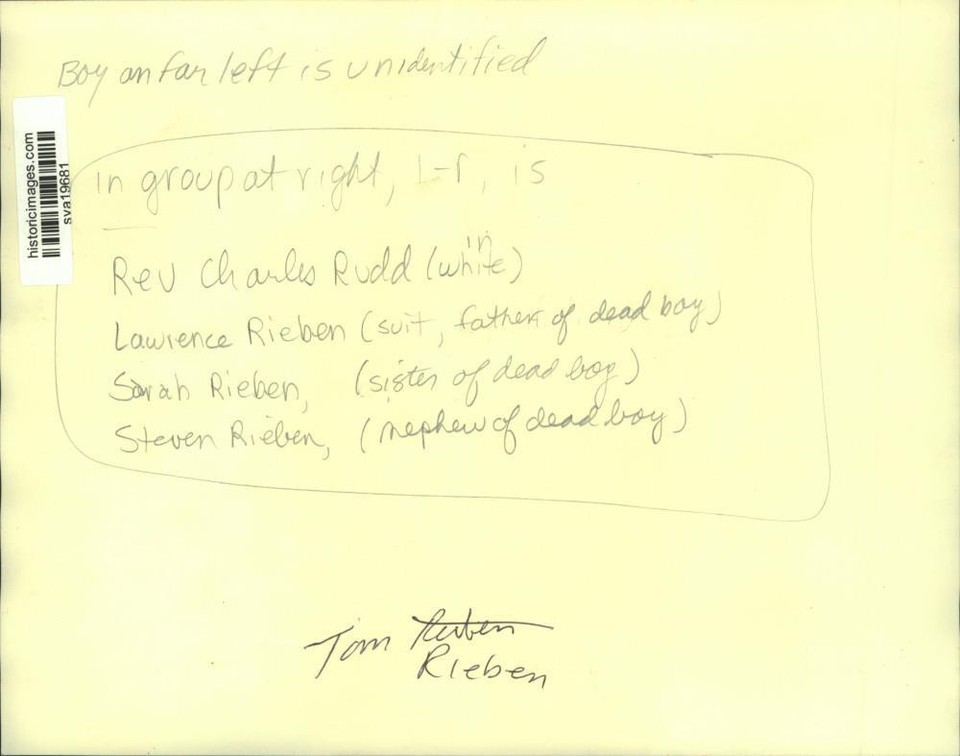 Boy on far left is unidentified
historicimages.com
sva19681
In group at right, L-r, is
Rev Charles Rudd (in white)
Lawrence Rieben (suit, father of dead boy)
Sarah Rieben, (sister of dead boy)
Steven Rieben, (nephew of dead boy)
Tom Reiben
Rieben